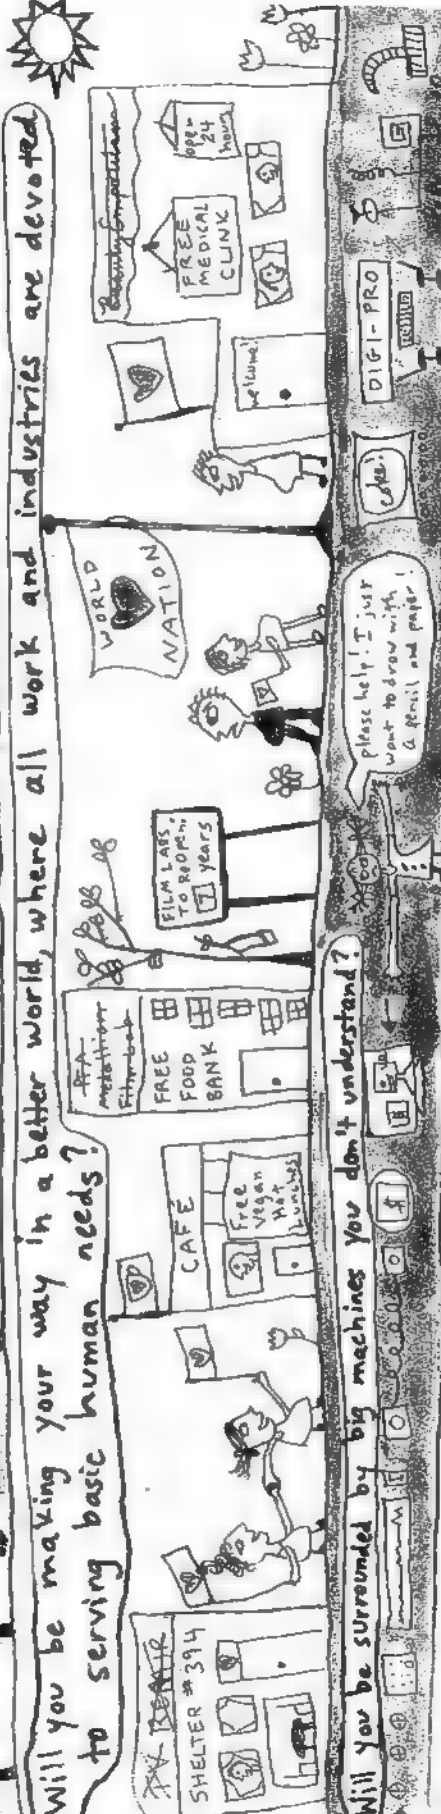 Will you be making your way in a better world, where all work and industries are devoted
to serving basic human needs?
TV REPAIR
SHELTER #394
CAFÉ
Free
Vegan
Hot
Lunches
PFA
Medallion
Film Lab
FREE
FOOD
BANK
FILM LABS
TO REOPEN:
7 years
WORLD
NATION
welcome!
Beauty Competition
FREE
MEDICAL
CLINIK
open
24
hours
Will you be surrounded by big machines you don't understand?
please help! I just
want to draw with
a pencil and paper!
coke!
DIGI-PRO